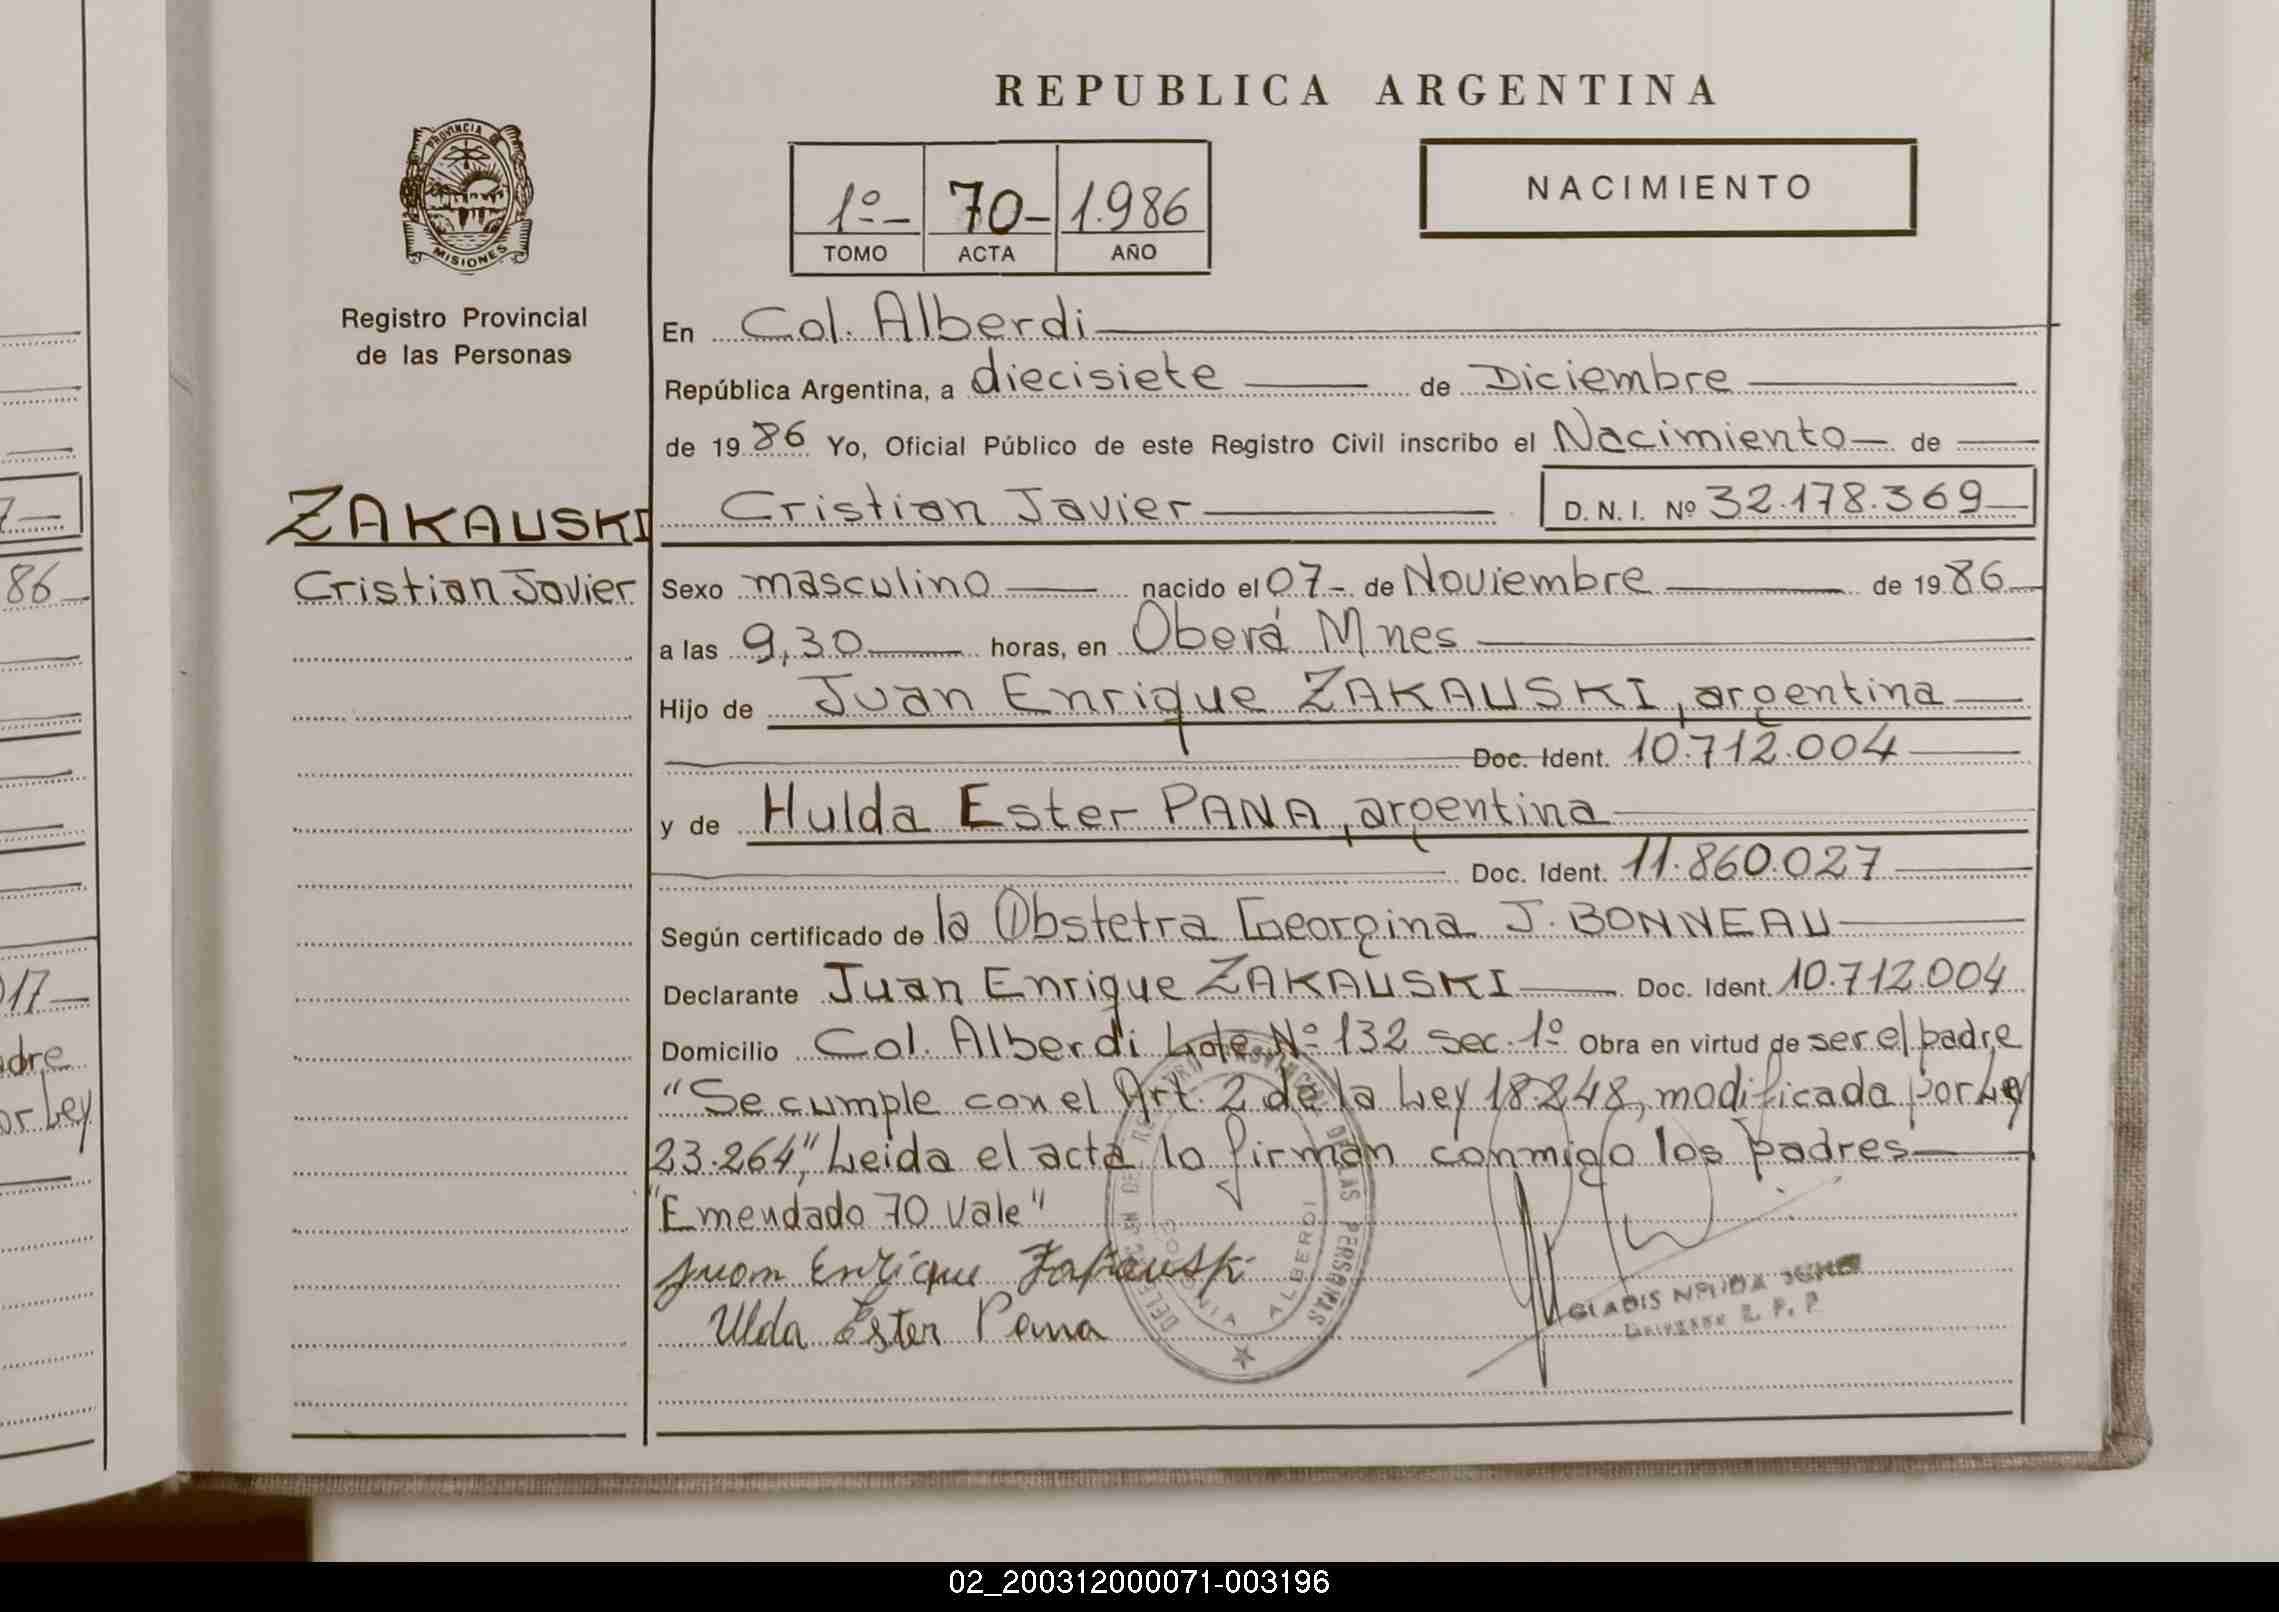 REPUBLICA ARGENTINA
PROVINCIA DE
MISIONES
Registro Provincial
de las Personas
1º- 70- 1.986
TOMO ACTA AÑO
NACIMIENTO
En Col. Alberdi
República Argentina, a diecisiete de Diciembre
de 19 86 Yo, Oficial Público de este Registro Civil inscribo el Nacimiento de
ZAKAUSKI
Cristian Javier
Cristian Javier D.N.I. Nº 32.178.369
Sexo masculino nacido el 07- de Noviembre de 19 86
a las 9,30 horas, en Oberá Mnes
Hijo de Juan Enrique ZAKAUSKI, argentina
Doc. Ident. 10.712.004
y de Hulda Ester PANA, argentina
Doc. Ident. 11.860.027
Según certificado de la Obstetra Georgina J. BONNEAU
Declarante Juan Enrique ZAKAUSKI Doc. Ident. 10.712.004
Domicilio Col. Alberdi Lote Nº 132 sec. 1º Obra en virtud de ser el padre
"Se cumple con el Art. 2 de la Ley 18.248, modificada por Ley
23.264," Leida el acta lo firman conmigo los padres
"Emendado 70 vale"
Juan Enrique
Ulda Ester Pana
DE LAS PERSONAS
ALBERDI
GLADIS
86
017
adre
or Ley
02_200312000071-003196